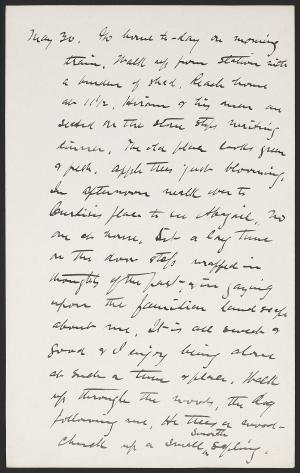 May 30. Go home to-day on morning
train. Walk up from station with
a burden of shad. Reach home
at 11½. Hiram & his men are
seated on the stone steps waiting
dinner. The old place looks green
& fresh. Apple trees just blooming.
In afternoon walk over to
Curtis's place to see Abigail. No
one at home. Sit a long time
on the door steps wrapped in
thoughts of the past & in gazing
upon the familiar landscape
about me. It is all sweet &
good & I enjoy being alone
at such a time & place. Walk
up through the woods, the dog
following me. He trees a wood-
chuck up a small smooth sapling.